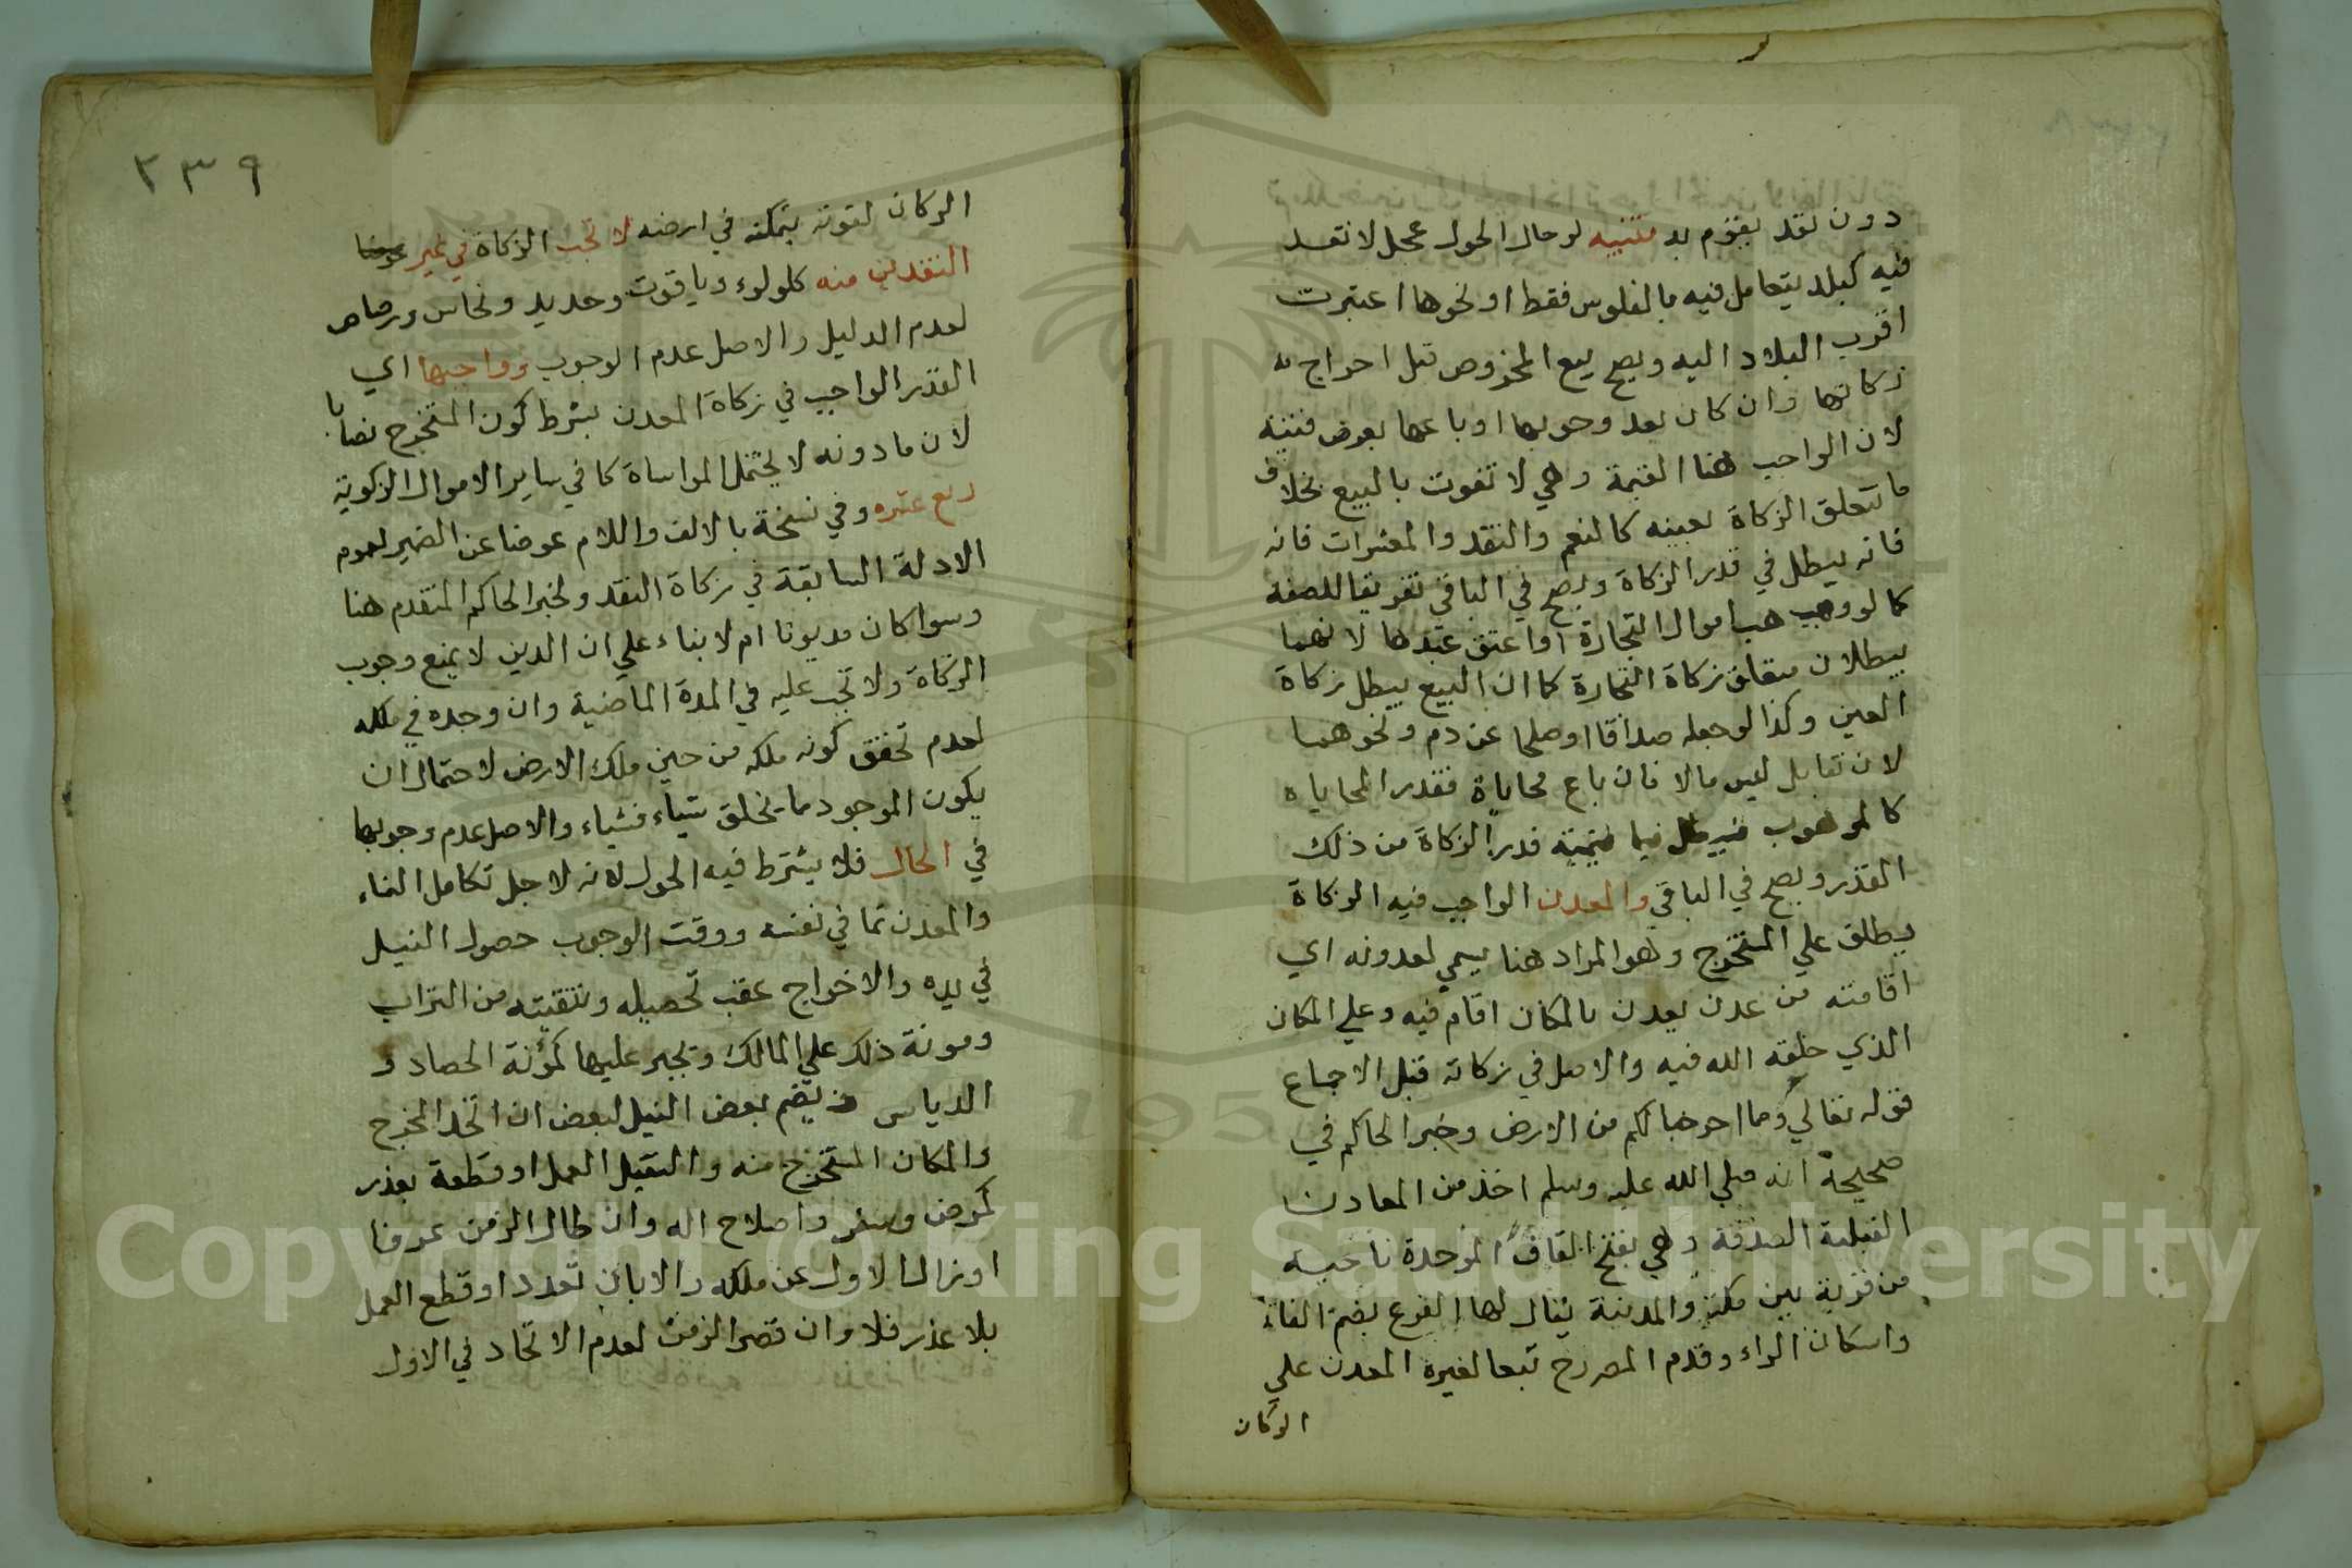 دون نقد يقوم به تنبيه لو حال الحول بمحل لا نقد
فيه كبلد يتعامل فيه بالفلوس فقط او نحوها اعتبرت
اقرب البلاد اليه ويصح بيع المخروص قبل اخراج
زكاتها وان كان بعد وجوبها او باعها بعرض قنية
لان الواجب هنا القيمة وهي لا تفوت بالبيع بخلاف
ما تتعلق الزكاة بعينه كالنعم والنقد والمعشرات فانه
فانه يبطل في قدر الزكاة ويصح في الباقي تفريقا للصفقة
كما لو وهب اموال التجارة او اعتق عبدها لانهما
يبطلان متعلق زكاة التجارة كما ان البيع يبطل زكاة
العين وكذا لو جعله صداقا او صلحا عن دم ونحوهما
لان تقابل ليس مالا فان باع محاباة فقدر المحاباه
كالموهوب فيبطل فيما قيمته قدر الزكاة من ذلك
القدر ويصح في الباقي والمعدن الواجب فيه الزكاة
يطلق علي المستخرج وهو المراد هنا يسمي لعدونه اي
اقامته من عدن يعدن بالمكان اقام فيه وعلي المكان
الذي خلقه الله فيه والاصل في زكاته قبل الاجماع
قوله تعالي ومما اخرجنا لكم من الارض وخبر الحاكم في
صحيحه انه صلي الله عليه وسلم اخذ من المعادن
القبلية الصدقة وهي بفتح القاف الموحدة ناحيه
من قرية بين مكة والمدينة يقال لها الفرع بضم الفاء
واسكان الراء وقدم المص رح تبعا لغيره المعدن علي
الركان
٢٣٩
الركان لقوته بتمكنه في ارضه لا تجب الزكاة في غير
النقدين منه كلولوء وياقوت وحديد ونحاس ورصاص
لعدم الدليل والاصل عدم الوجوب وواجبها اي
القدر الواجب في زكاة المعدن بشرط كون المستخرج نصابا
لان ما دونه لا يحتمل المواساة كما في ساير الاموال الزكوية
ربع عشره وفي نسخة بالالف واللام عوضا عن الضمير لعموم
الادلة السابقة في زكاة النقد ولخبر الحاكم المتقدم هنا
وسوا كان مديونا ام لا بناء علي ان الدين لا يمنع وجوب
الزكاة ولا تجب عليه في المدة الماضية وان وجده في ملكه
لعدم تحقق كونه ملكه من حين ملك الارض لاحتمال ان
يكون الموجود مما يخلق شياء فشياء والاصل عدم وجوبها
في الحال فلا يشترط فيه الحول لانه لاجل تكامل النماء
والمعدن نما في نفسه ووقت الوجوب حصول النيل
في يده والاخراج عقب تحصيله وتنقيته من التراب
ومونة ذلك علي المالك ويجبر عليها كمؤنة الحصاد و
الدياس ويضم بعض النيل لبعض ان اتحد المخرج
والمكان المستخرج منه والتقيل العمل او قطعه بعذر
كمرض وسفر واصلاح اله وان طال الزمن عرفا
او زال الاول عن ملكه والا بان تعدد او قطع العمل
بلا عذر فلا وان قصر الزمن لعدم الاتحاد في الاول
Copyright © King Saud University
195